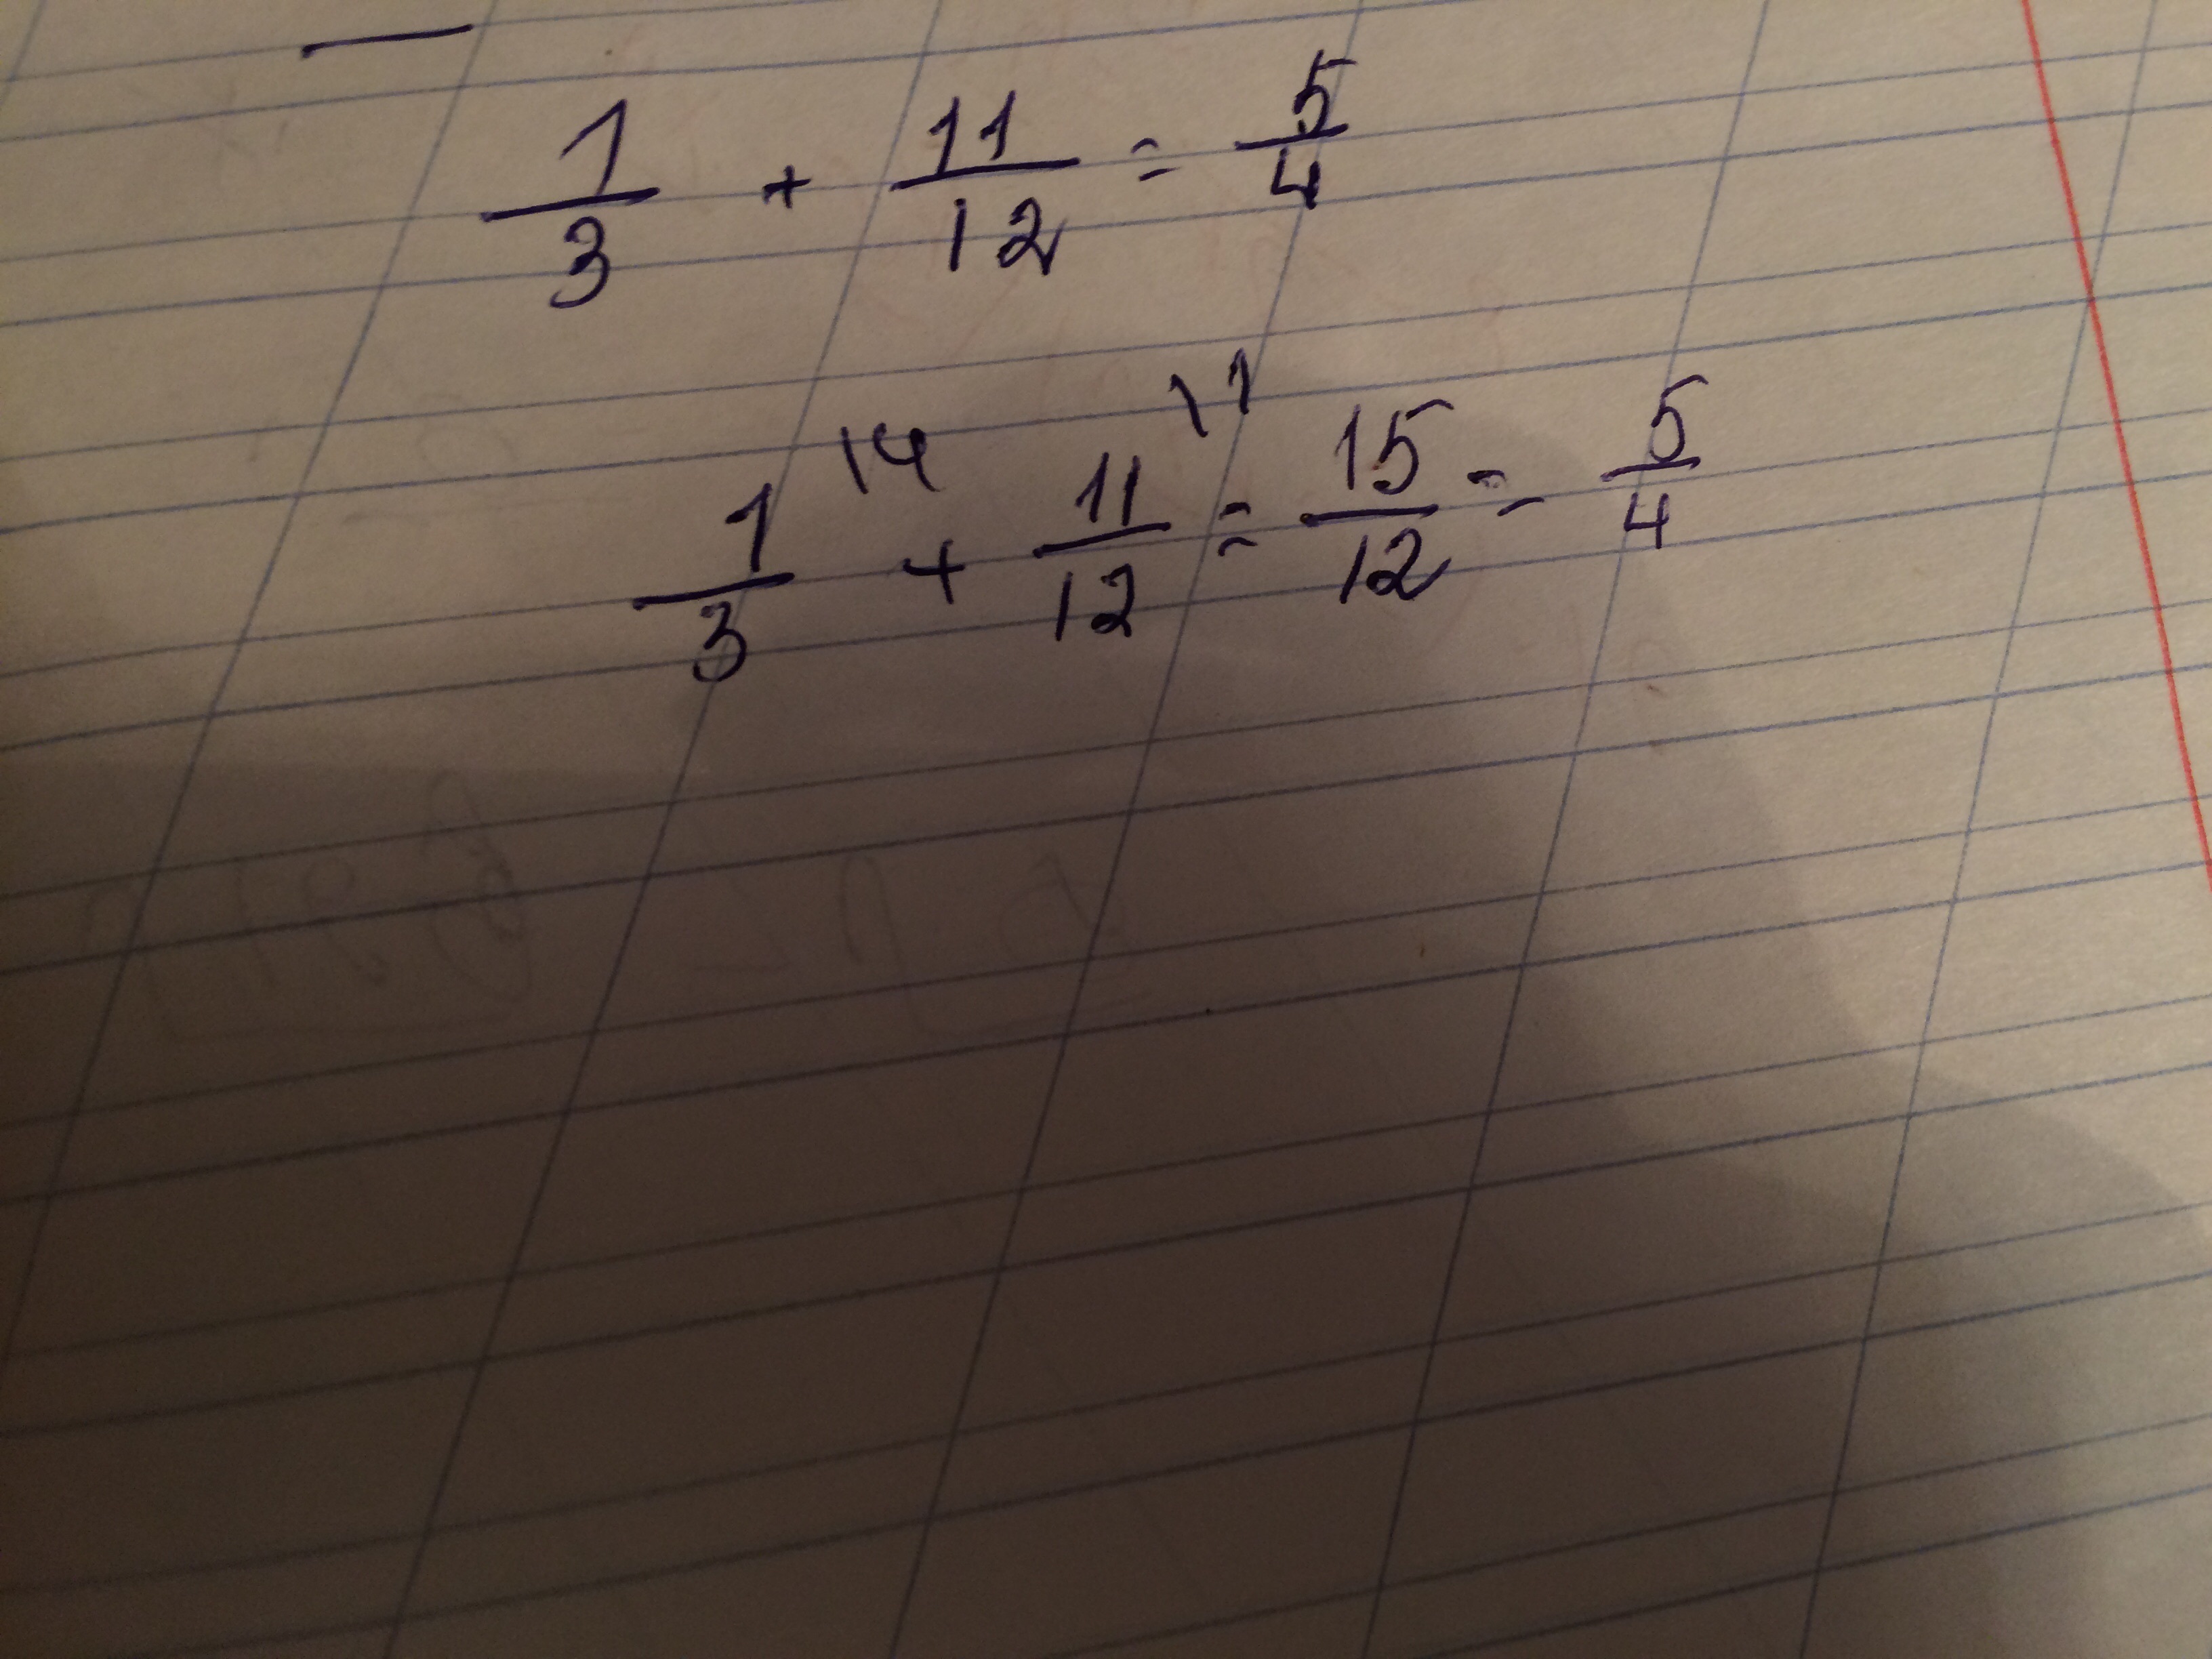 1/3 + 11/12 = 5/4
1/3 \4 + 11/12 \1 = 15/12 = 5/4